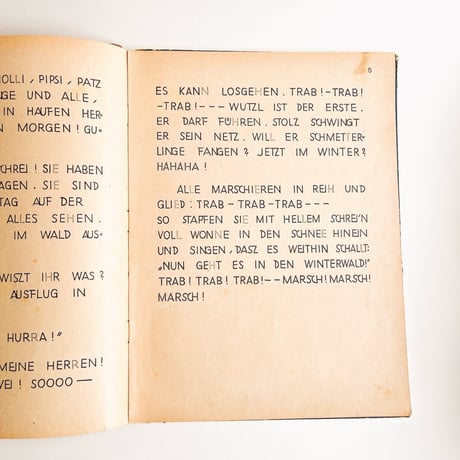 HOLLI, PIPSI, PATZ
GE UND ALLE,
IN HAUFEN HER-
N MORGEN! GU-
CHREI! SIE HABEN
AGEN. SIE SIND
TAG AUF DER
ALLES SEHEN.
IM WALD AUS-
WISZT IHR WAS?
AUSFLUG IN
HURRA!"
MEINE HERREN!
VEI! SOOOO—
5
ES KANN LOSGEHEN. TRAB!-TRAB!
-TRAB!--- WUTZL IST DER ERSTE.
ER DARF FÜHREN. STOLZ SCHWINGT
ER SEIN NETZ. WILL ER SCHMETTER-
LINGE FANGEN? JETZT IM WINTER?
HAHAHA!
ALLE MARSCHIEREN IN REIH UND
GLIED: TRAB-TRAB-TRAB---
SO STAPFEN SIE MIT HELLEM SCHREI'N
VOLL WONNE IN DEN SCHNEE HINEIN
UND SINGEN, DASZ ES WEITHIN SCHALLT:
„NUN GEHT ES IN DEN WINTERWALD!"
TRAB! TRAB! TRAB!-- MARSCH! MARSCH!
MARSCH!